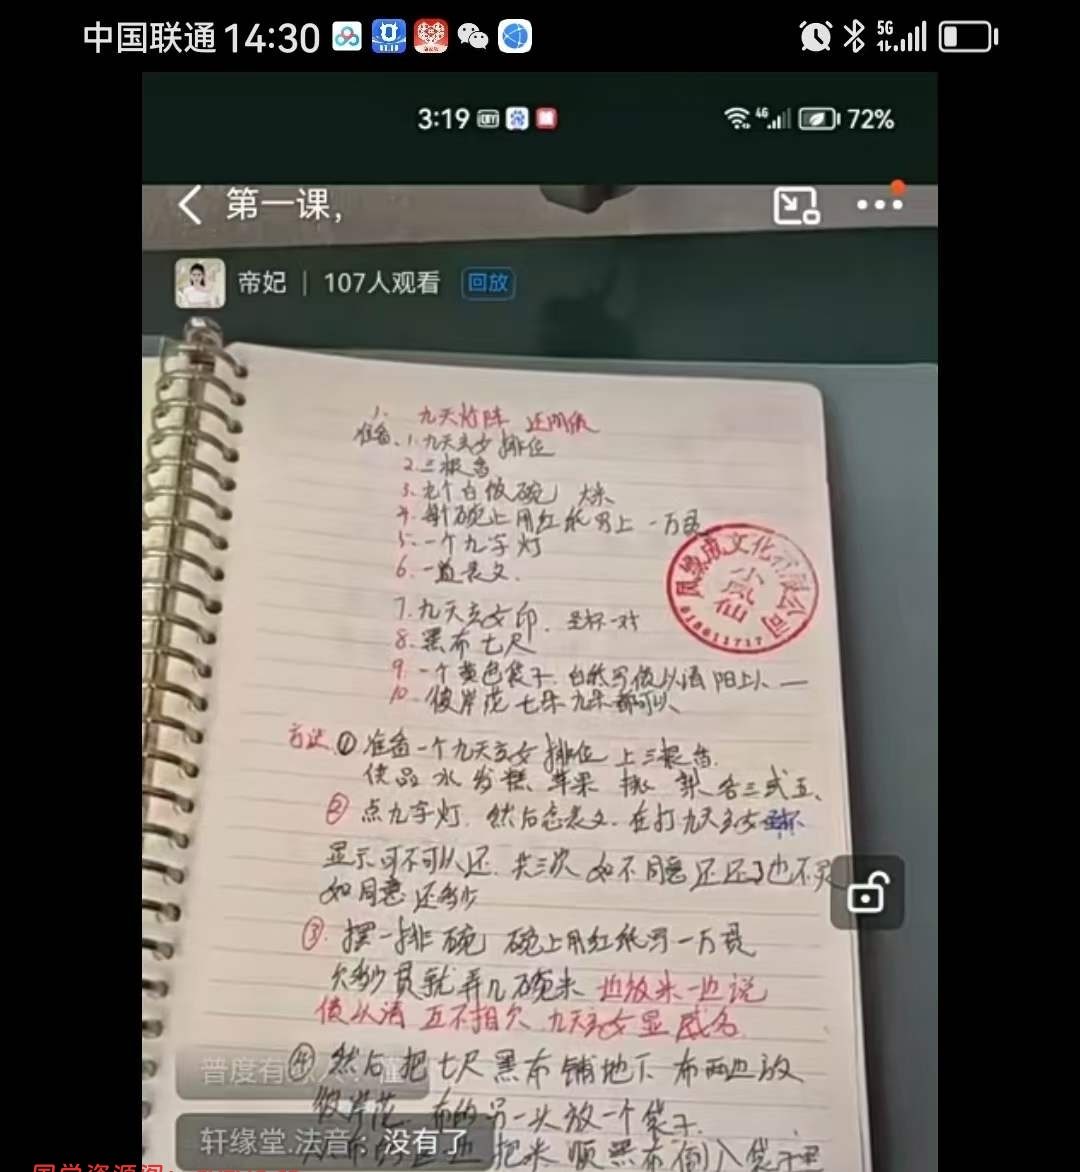 中国联通 14:30
5G
3:19
4G
72%
第一课,
帝妃 | 107人观看 回放
1. 九天灯阵 还阴债
准备、1.九天玄女排位
2.三根香
3.九个白饭碗 大米
4.每个碗上用红纸写上一万贯
5.一个九字灯
6.一道表文.
7.九天玄女印. 圣杯一对
8.黑布七尺
9.一个黄色袋子.白纸写债以清 阳上人一
10.彼岸花七朵九朵都可以、
方法①准备一个九天玄女排位 上三根香.
供品 水 发糕 苹果 桃 梨 各三或五、
② 点九字灯. 然后念表文. 在打九天玄女圣杯
显示可不可以还. 共三次 如不同意还还了也不灵
如同意还多少
③. 摆一排碗 碗上用红纸写一万贯
欠多少贯就弄几碗米 边放米一边说
债以清 互不相欠 九天玄女显威名.
④ 然后把七尺黑布铺地下 布两边放
彼岸花 布的另一头放一个袋子.
把米顺黑布倒入袋子里
普度有
轩缘堂.法音: 没有了
凤缘成文化有限公司
小凤仙